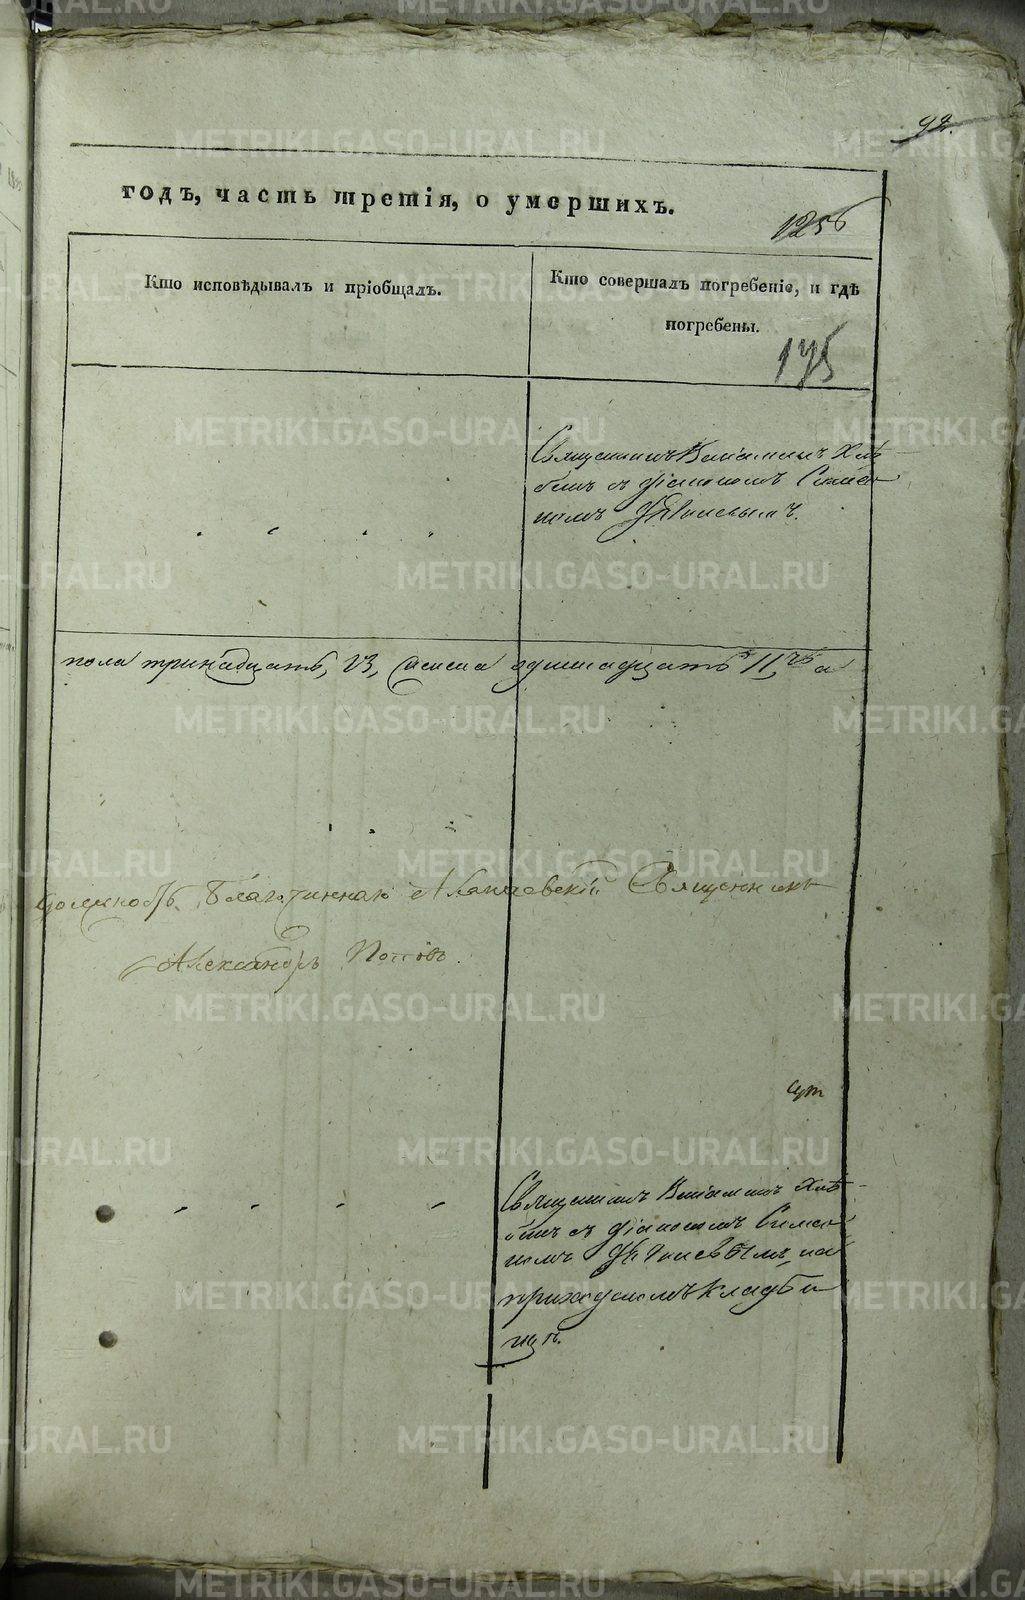 92.
годъ, часть третія, о умершихъ.
1256
Кто исповѣдывалъ и пріобщалъ.
Кто совершалъ погребеніе, и гдѣ
погребены.
175
Священникъ Веніаминъ Хлѣ-
бинъ съ діакономъ Симео
номъ
пола тринадцать, 13, женска одинадцать 11,
должность Благочиннаго Священникъ
Александръ Поповъ.
Священникъ Веніаминъ Хлѣ-
бинъ съ діакономъ Симео
номъ на
приходскомъ кладби
щѣ.
METRIKI.GASO-URAL.RU